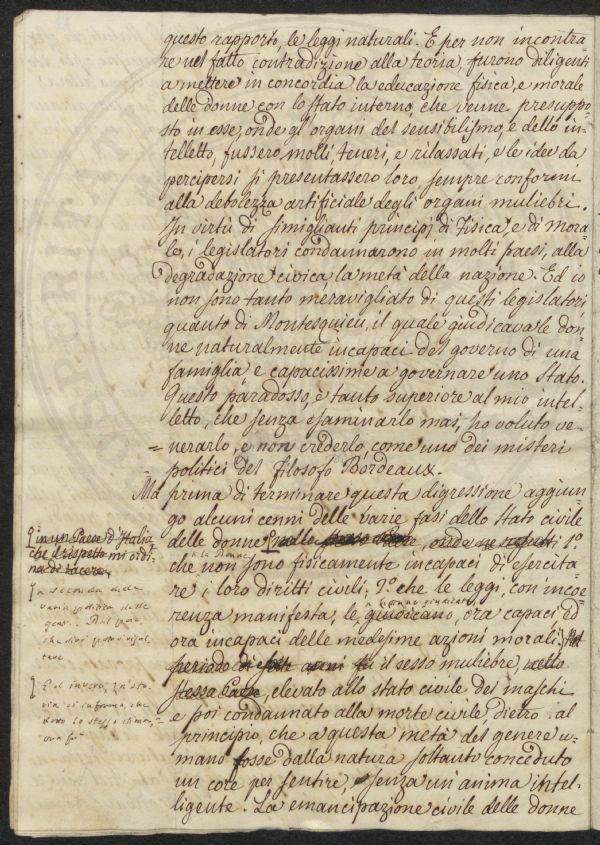 questo rapporto, le leggi naturali. E per non incontra=
re nel fatto contradizione alla teoria, furono diligenti
a mettere in concordia la educazione fisica, e morale
delle donne con lo stato interno, che venne presuppo=
sto in esse, onde gl'organi del sensibilismo, e dello in=
telletto, fussero, molli, teneri, e rilassati, e le idee da
percipersi si presentassero loro sempre conformi
alla debolezza artificiale degli organi muliebri.
In virtù di simiglianti principj di Fisica, e di mora=
le, i legislatori condannarono in molti paesi, alla
degradazione civica, la metà della nazione. Ed io
non sono tanto meravigliato di questi legislatori
quanto di Montesquieu, il quale giudicava le don=
ne naturalmente incapaci del governo di una
famiglia e capacissime a governare uno Stato.
Questo paradosso, è tanto superiore al mio intel=
letto, che senza esaminarlo mai, ho voluto ve=
= nerarlo, e non crederlo, come uno dei misteri
politici del filosofo Bordeaux.
Ma prima di terminare questa digressione aggiun=
go alcuni cenni delle varie fasi dello stato civile
delle donne 1.º
in un Paese d'Italia
che il rispetto mi ordi=
na di tacere
le donne
che non sono fisicamente incapaci di esercita=
re, i loro diritti civili; 2.º che le leggi, con incoe=
renza manifesta, le giudicano, ora capaci, ed
hanno giudicato
ora incapaci delle medesime azioni morali;
periodo di anni il sesso muliebre, nello
stesso Paese, elevato allo stato civile dei maschi
e poi condannato alla morte civile, dietro al
principio, che a questa metà del genere u=
mano fosse dalla natura soltanto conceduto
un core per sentire, senza un'anima intel=
ligente. La emancipazione civile delle donne
a seconda delle
varie politica delle
che